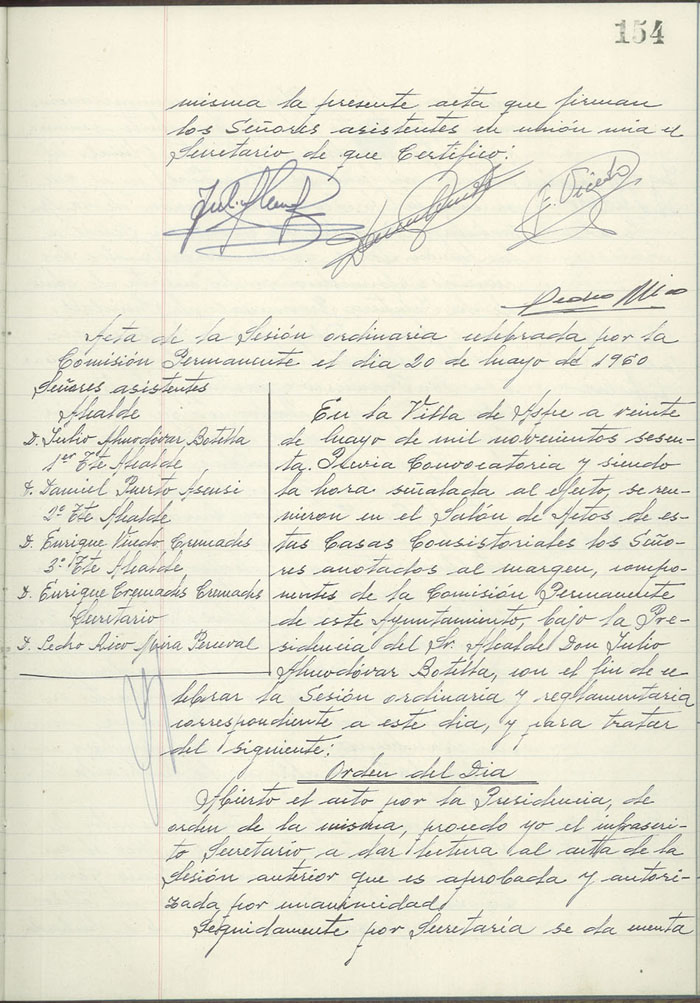 154
misma la presente acta que firman
los Señores asistentes en unión mia el
Secretario de que Certifico:
E. Vicedo
Pedro Mira
Acta de la Sesión ordinaria celebrada por la
Comisión Permanente el dia 20 de Mayo de 1960
Señores asistentes
Alcalde
D. Julio Almodóvar Botella
1er Tte Alcalde
D. Daniel Puerto Asensi
2º Tte Alcalde
D. Enrique Vicedo Cremades
3º Tte Alcalde
D. Enrique Cremades Cremades
Secretario
D. Pedro Rico Mira Perceval
En la Villa de Aspe a veinte
de Mayo de mil novecientos sesen-
ta. Previa Convocatoria y siendo
la hora señalada al efecto, se reu-
nieron en el Salón de Actos de es-
tas Casas Consistoriales los Seño-
res anotados al margen, compo-
nentes de la Comisión Permanente
de este Ayuntamiento, bajo la Pre-
sidencia del Sr. Alcalde Don Julio
Almodóvar Botella, con el fin de ce
lebrar la Sesión ordinaria y reglamentaria
correspondiente a este dia, y para tratar
del siguiente:
Orden del Dia
Abierto el acto por la Presidencia, de
orden de la misma, procedo yo el infrascri-
to Secretario a dar lectura al acta de la
Sesión anterior que es aprobada y autori-
zada por unanimidad
Seguidamente por Secretaría se da cuenta